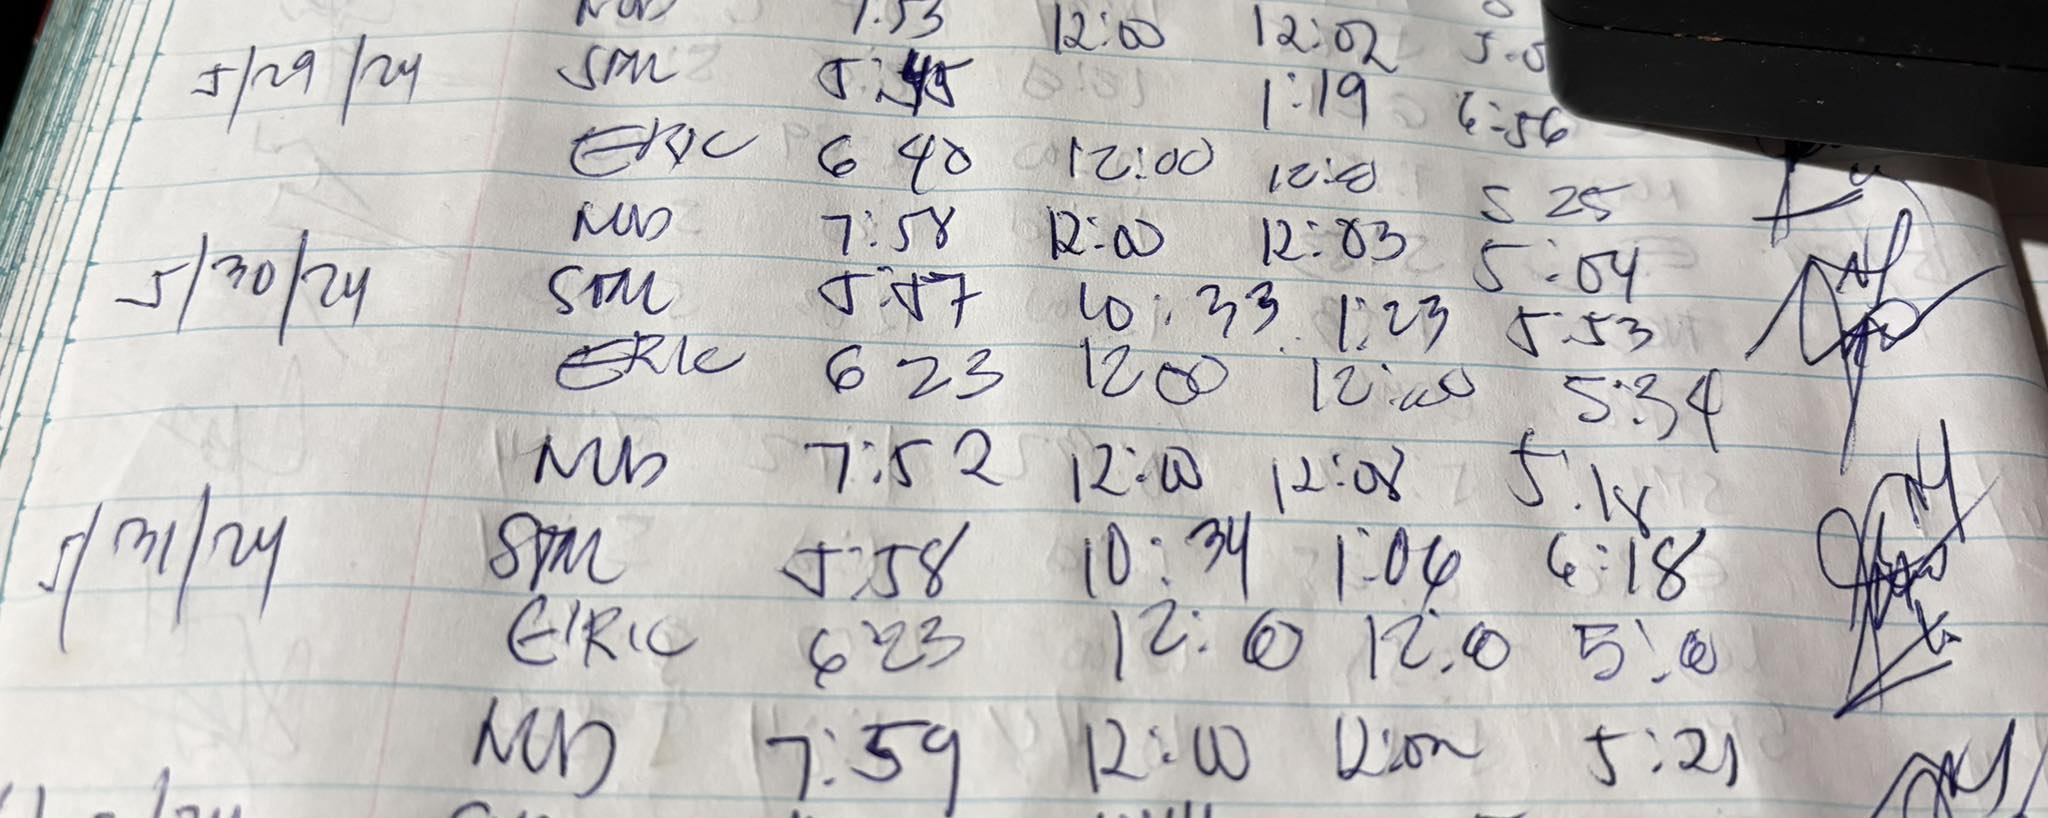 7:53 12:00 12:02
5/29/24 STM 5:45 1:19 6:56
ERIC 6 40 12:00 12:0 5 25
NUD 7:58 12:00 12:03 5:04
5/30/24 STM 5:57 10:33 1:23 5:53
ERIC 6 23 12 00 12:00 5:34
NUD 7:52 12:00 12:08 5:18
5/31/24 STM 5:58 10:34 1:06 6:18
ERIC 6 23 12:0 12:0 5:0
NUD 7:59 12:00 5:21